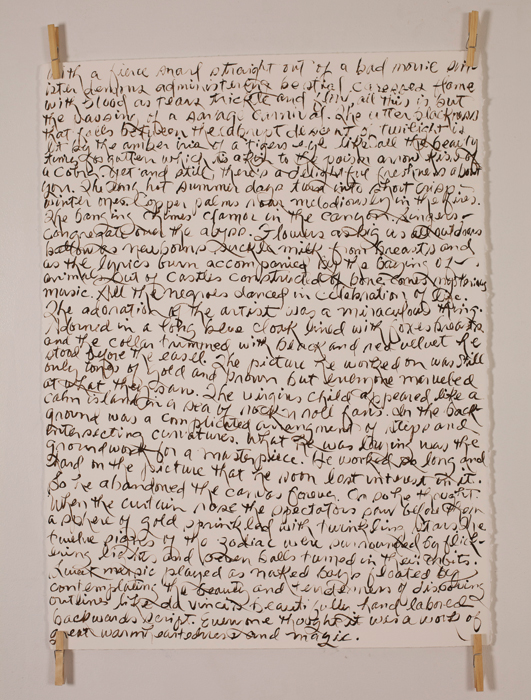 with a fierce snarl straight out of a bad movie sin-
ister demons administering bestial caresses flame
with blood as tears trickle and all this is but
the passing of a savage carnival. The utter blackness
that falls between the descent of twilight is
lit by the amber iris of a tigers eye. Like all the beauty
time forgotten which is akin to the poison arrow kiss of
a Cobra. Yet and still there's a delightful freshness about
you. The long hot summer days turn into short crisp
winter ones. Copper palms roar melodiously in the fires.
The banging chimes clamor in the canyon. Singers
Congregate over the abyss. Flowers as big as
balloons as newborns suckle milk from breasts and
as the lyrics burn accompanied by the baying of
animals out of castles constructed of bone comes mysterious
music. All the negroes danced in celebration of
The adoration of the artist was a miraculous thing.
Adorned in a long blue cloak lined with foxes breasts
and the collar trimmed with black and red velvet he
stood before the easel. The picture he worked on was still
only tones of gold and brown but everyone marveled
at what they saw. The virgins child appeared like a
calm island in a sea of rock n roll fans. In the back
ground was a complicated arrangment of steps and
intersecting curvatures. What he was laying was the
groundwork for a masterpiece. He worked so long and
hard on the picture that he soon lost interest in it.
So he abandoned the canvas forever. Or so he thought.
When the curtain rose the spectators saw before them
a sphere of gold sprinkled with twinkling stars. The
twelve signs of the zodiac were surrounded by flick-
ering lights and seven balls turned in their orbits.
Sweet music played as naked boys floated by
contemplating the beauty and tenderness of
outlines like da vincis beautifully hand labored
backwards script. Everyone thought it was a work of
great warm heartedness and magic.